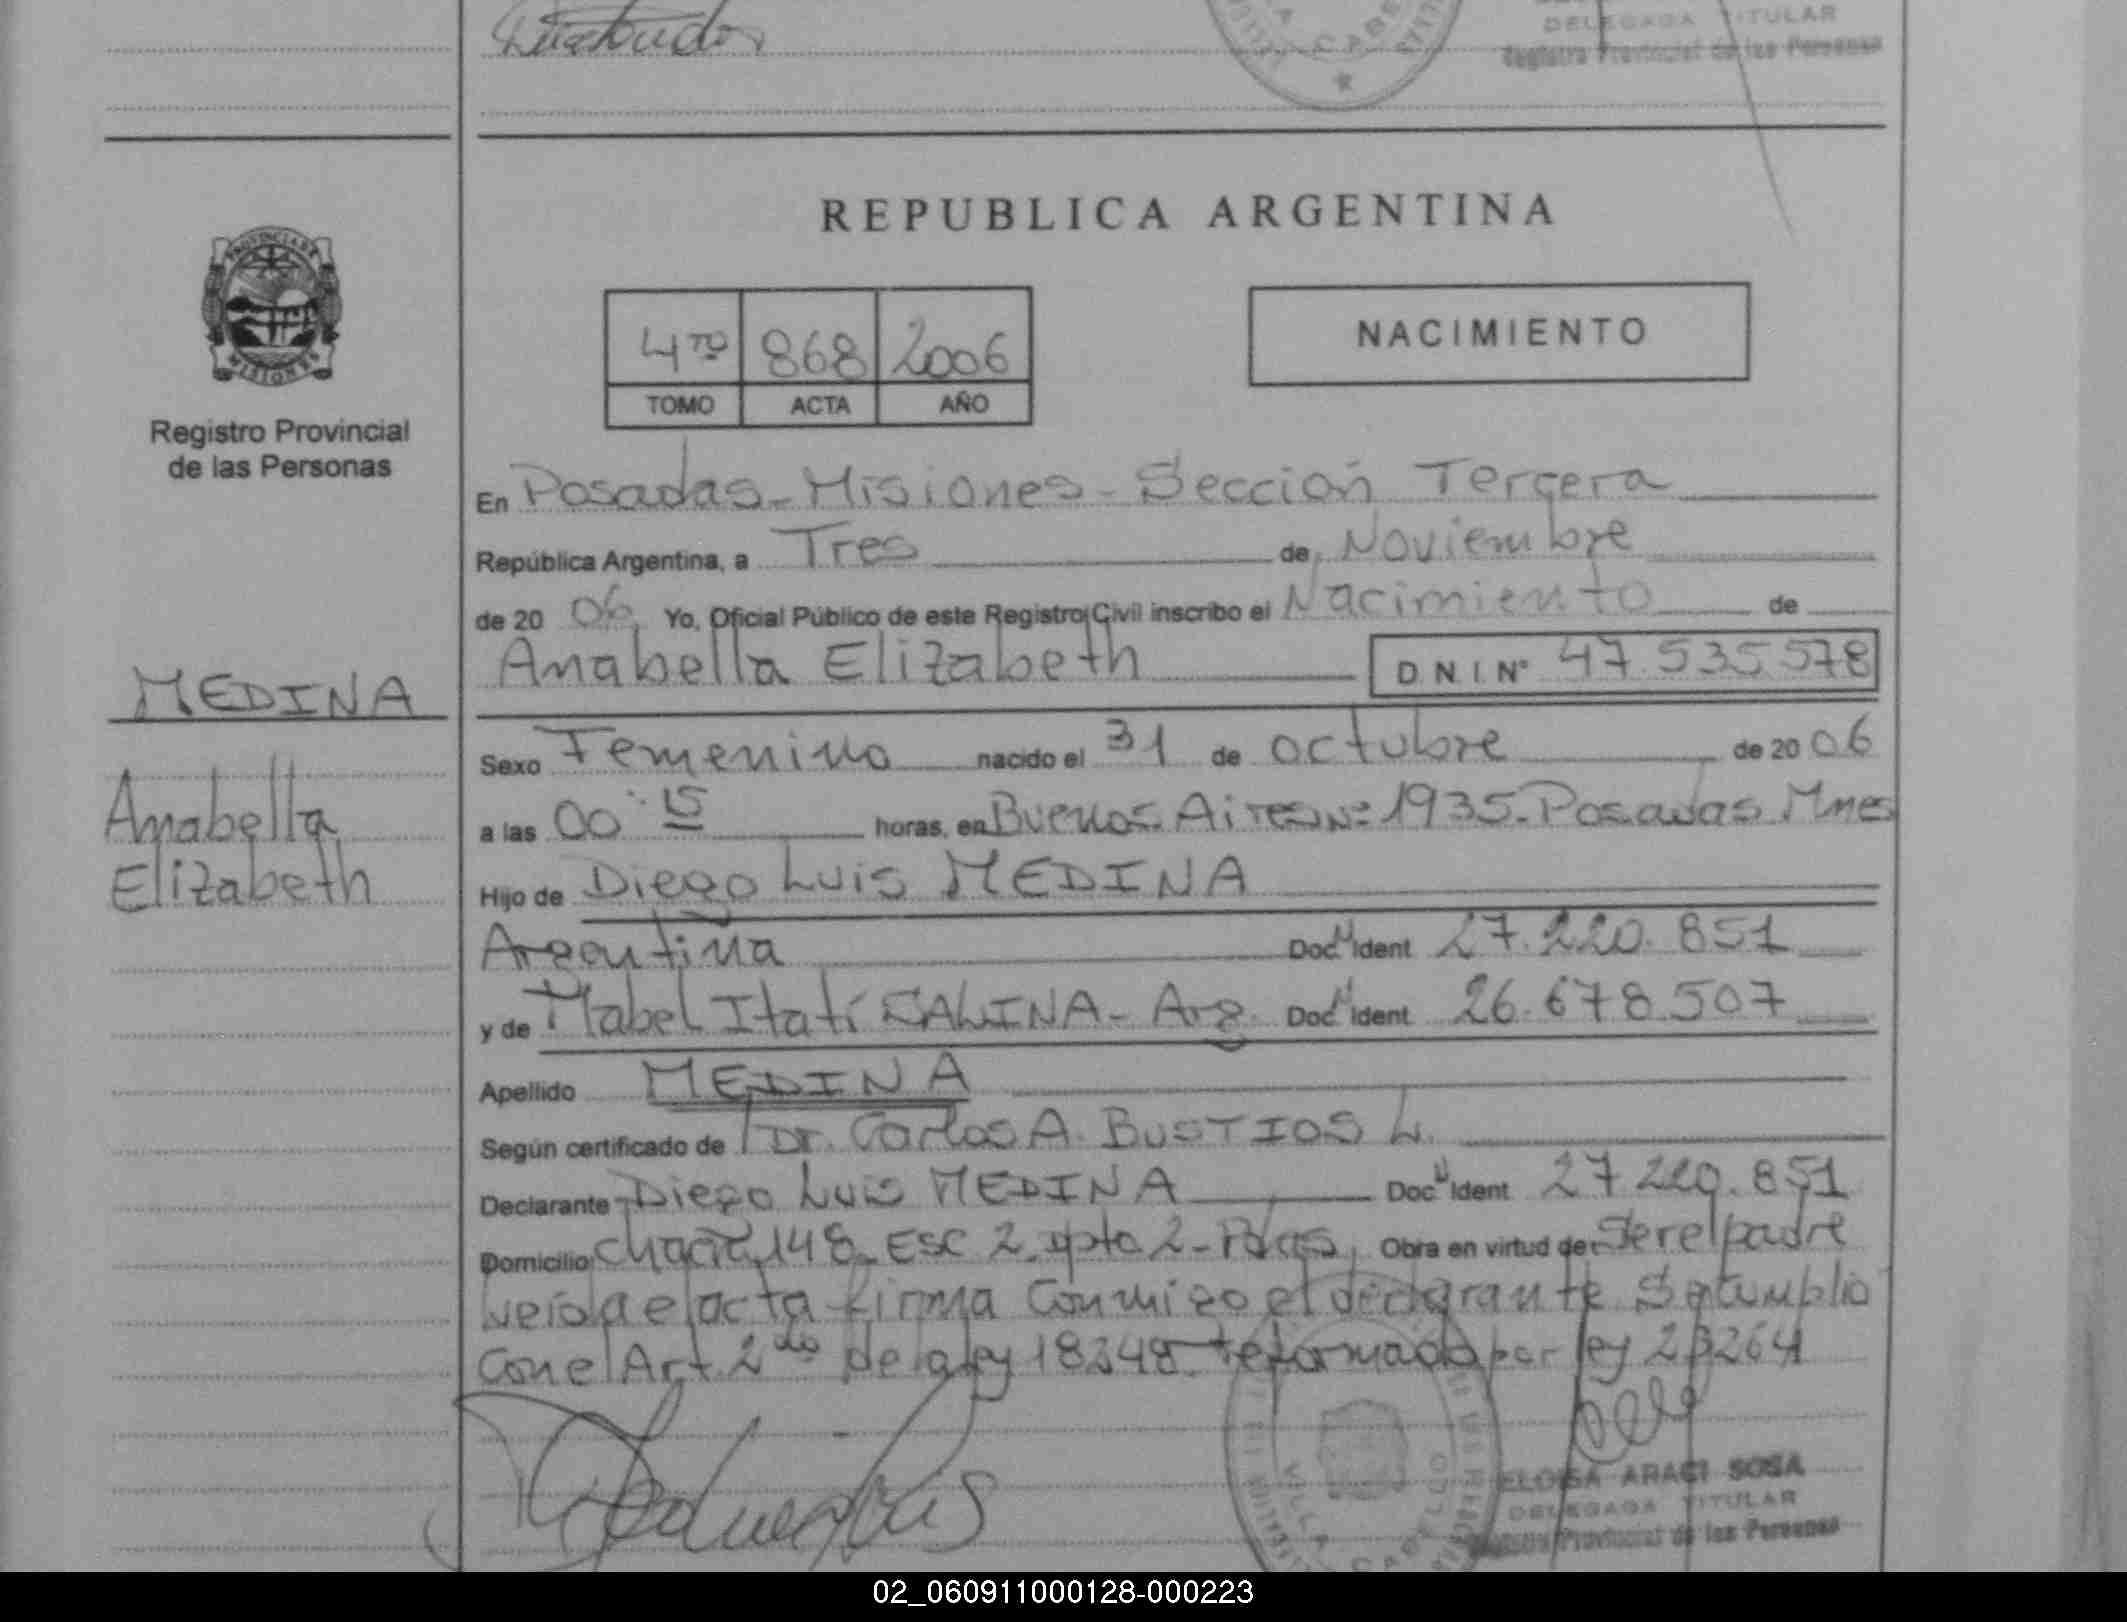 DELEGADA TITULAR
Registro Provincial de las Personas
REPUBLICA ARGENTINA
PROVINCIA DE
MISIONES
Registro Provincial
de las Personas
4TO 868 2006
TOMO ACTA AÑO
NACIMIENTO
En Posadas - Misiones - Sección Tercera
República Argentina, a Tres de Noviembre
de 20 06 Yo, Oficial Público de este Registro Civil inscribo el Nacimiento de
Anabella Elizabeth D N I N° 47.535.578
MEDINA
Anabella
Elizabeth
Sexo Femenino nacido el 31 de octubre de 20 06
a las 00:15 horas, en Buenos Aires N° 1935 - Posadas Mnes
Hijo de Diego Luis MEDINA
Argentina Doc N Ident 27.220.851
y de Mabel Itatí SALINA - Arg. Doc N Ident 26.678.507
Apellido MEDINA
Según certificado de Dr. Carlos A. BUSTIOS L.
Declarante Diego Luis MEDINA Doc N Ident 27 220.851
Domicilio 148 Esc 2 dpto 2 - Pdas Obra en virtud de Ser el padre
el acta firma Conmigo el declarante
Con el Art. 2do de la ley 18248 reformado por ley 23264
VILLA CABELLO
ELOISA ARACI SOSA
DELEGADA TITULAR
Registro Provincial de las Personas
02_060911000128-000223